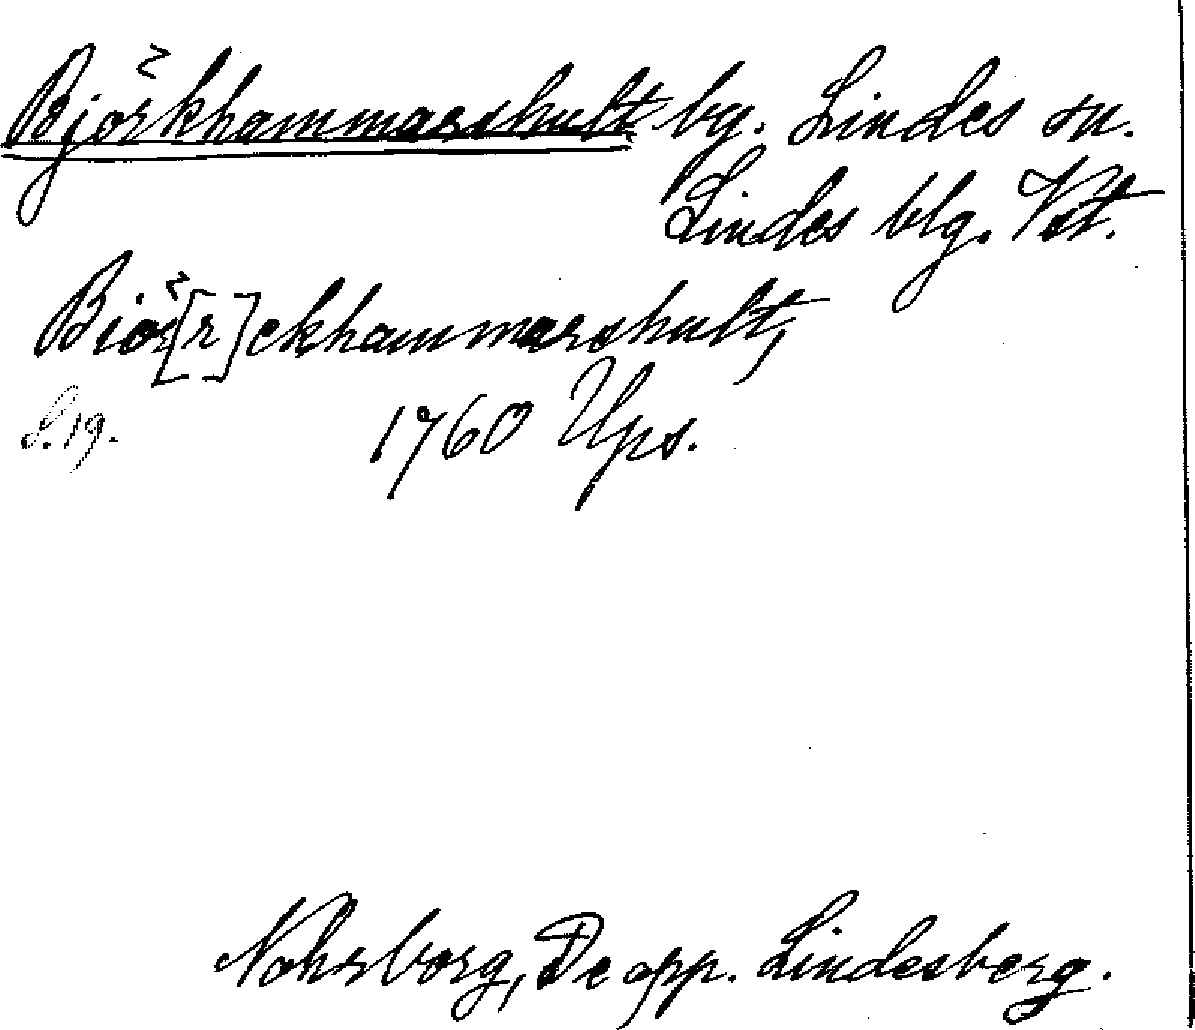 Björkhammarshult bg. Lindes sn.
Lindes blg. Vst.
Biö[r]ckhammarshult,
S. 19. 1760 Ups.
Nohrborg, De opp. Lindesberg.